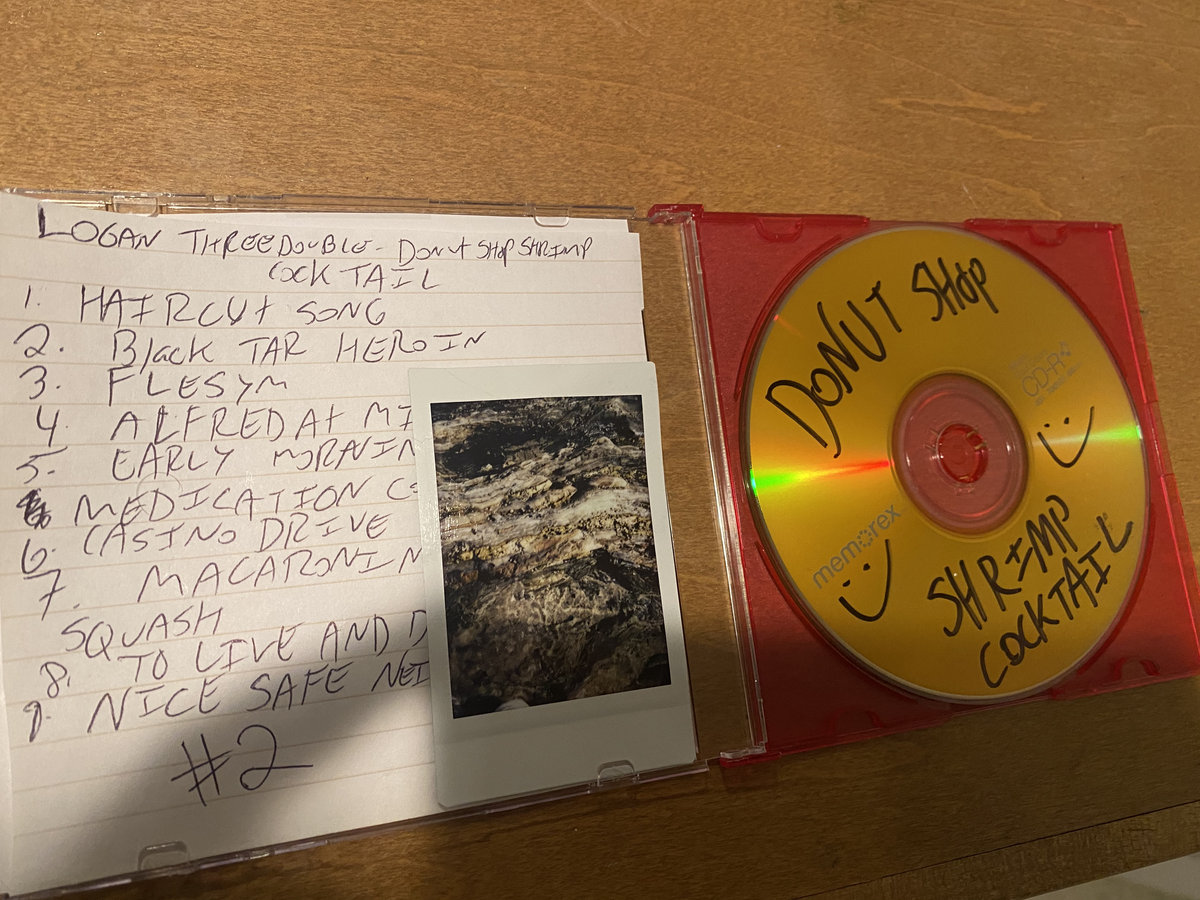 LOGAN THREEDOUBLE - DONUT SHOP SHRIMP
COCKTAIL
1. HAIRCUT SONG
2. BlACK TAR HEROIN
3. FLESYM
4. ALFRED AT MI
5. EARLY MORNIN
MEDICATION
6. CASINO DRIVE
7. MACARONI N
SQUASH
8. TO LIVE AND D
9. NICE SAFE NEI
#2
DONUT SHOP
CD-R
memorex
SHRIMP
COCKTAIL